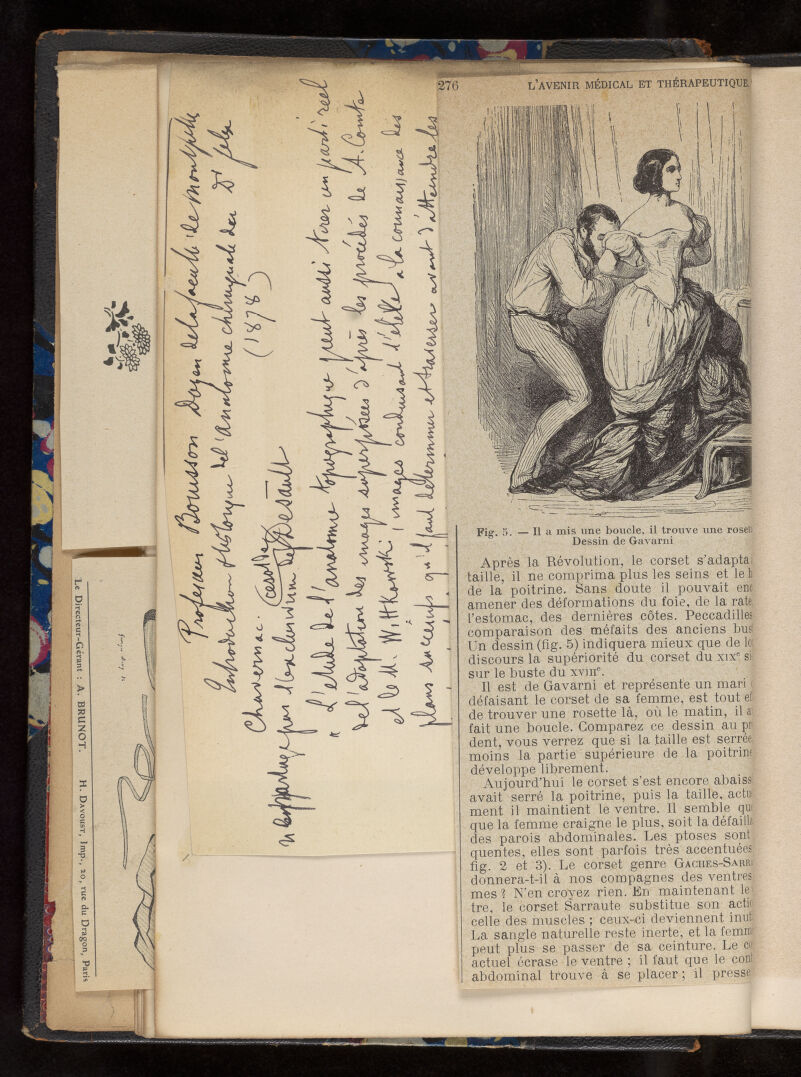 276
L'AVENIR MÉDICAL ET THÉRAPEUTIQUE
Fig. 5. — Il a mis une boucle, il trouve une rosett
Dessin de Gavarni
Après la Révolution, le corset s'adapta
taille, il ne comprima plus les seins et le b
de la poitrine. Sans doute il pouvait enc
amener des déformations du foie, de la rate
l'estomac, des dernières côtes. Peccadilles
comparaison des méfaits des anciens bus
Un dessin (fig. 5) indiquera mieux que de lo
discours la supériorité du corset du XIXe si
sur le buste du XVIIIe.
Il est de Gavarni et représente un mari
défaisant le corset de sa femme, est tout et
de trouver une rosette là, où le matin, il a
fait une boucle. Comparez ce dessin au pr
dent, vous verrez que si la taille est serrée
moins la partie supérieure de la poitrine
développe librement.
Aujourd'hui le corset s'est encore abaiss
avait serré la poitrine, puis la taille, actu
ment il maintient le ventre. Il semble qu
que la femme craigne le plus, soit la défailla
des parois abdominales. Les ptoses sont
quentes, elles sont parfois très accentuées
fig. 2 et 3). Le corset genre GACHES-SARR
donnera-t-il à nos compagnes des ventres
mes ? N'en croyez rien. En maintenant le
tre, le corset Sarraute substitue son actio
celle des muscles ; ceux-ci deviennent inut
La sangle naturelle reste inerte, et la femm
peut plus se passer de sa ceinture. Le co
actuel écrase le ventre ; il faut que le cont
abdominal trouve à se placer ; il presse
Professeur Bouisson Doyen de la faculté de Montpellier
Introduction historique de l'Anatomie chirurgicale du Dr
(1878)
Chavernac.
Desault
« L'étude de l'anatomie topographique peut aussi tirer un parti réel
de l'adaptation des images superposées d'après les procédés de A. Comte
et de M. Wittkowski, images conduisant l'élève à la connaissance des
plans successifs qu'il faut déterminer et traverser avant d'atteindre les
Le Directeur-Gérant : A. BRUNOT.
H. DAVOUST, Imp., 20, rue du Dragon, Paris